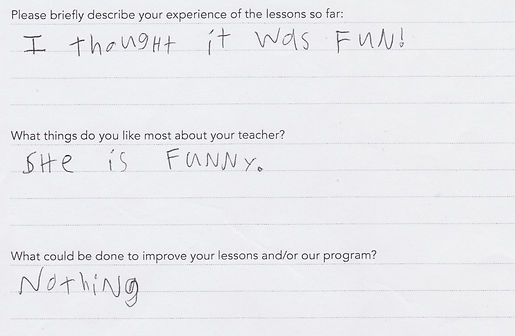 Please briefly describe your experience of the lessons so far:
I thougHt it was FuN!
What things do you like most about your teacher?
SHe is FuNNy.
What could be done to improve your lessons and/or our program?
NothiNg